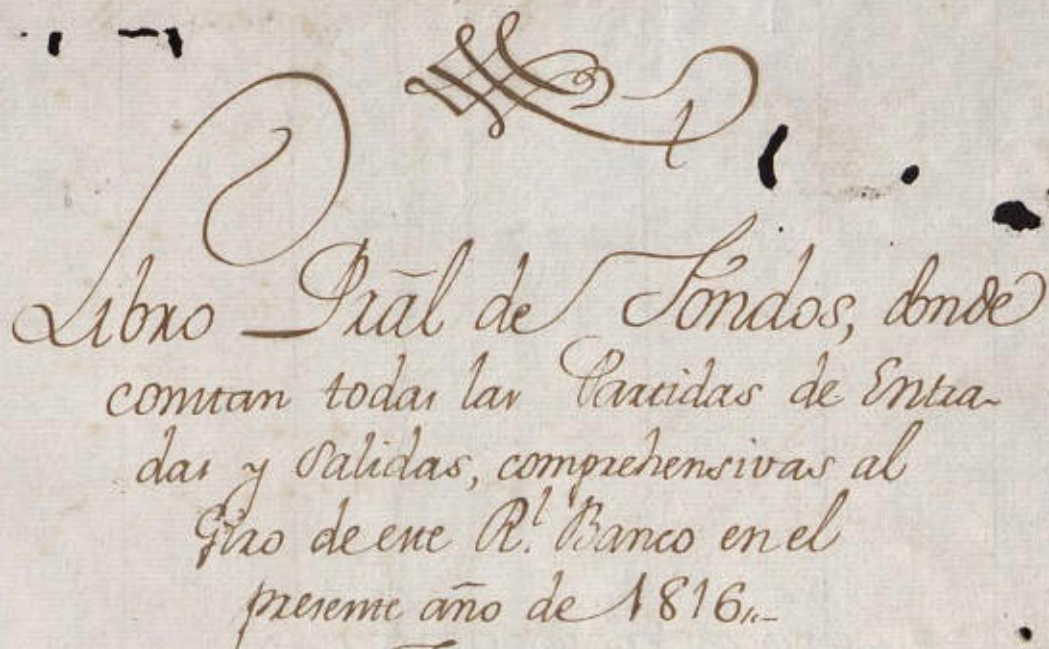 Libro Grãl de Fondos, donde
constan todas las Partidas de Entra-
das y Salidas, comprehensivas al
Giro de este Rl. Banco en el
presente año de 1816,,-